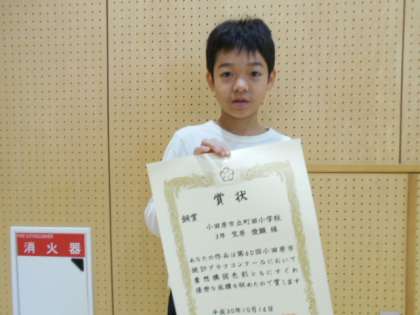 賞状
銅賞
小田原市立町田小学校
3年
様
あなたの作品は第60回小田原市
統計グラフコンクールにおいて
着想構図色彩ともにすぐれ
優秀な成績を収めたので賞します
平成30年10月14
FIRE EXTINGUISHER
消火器